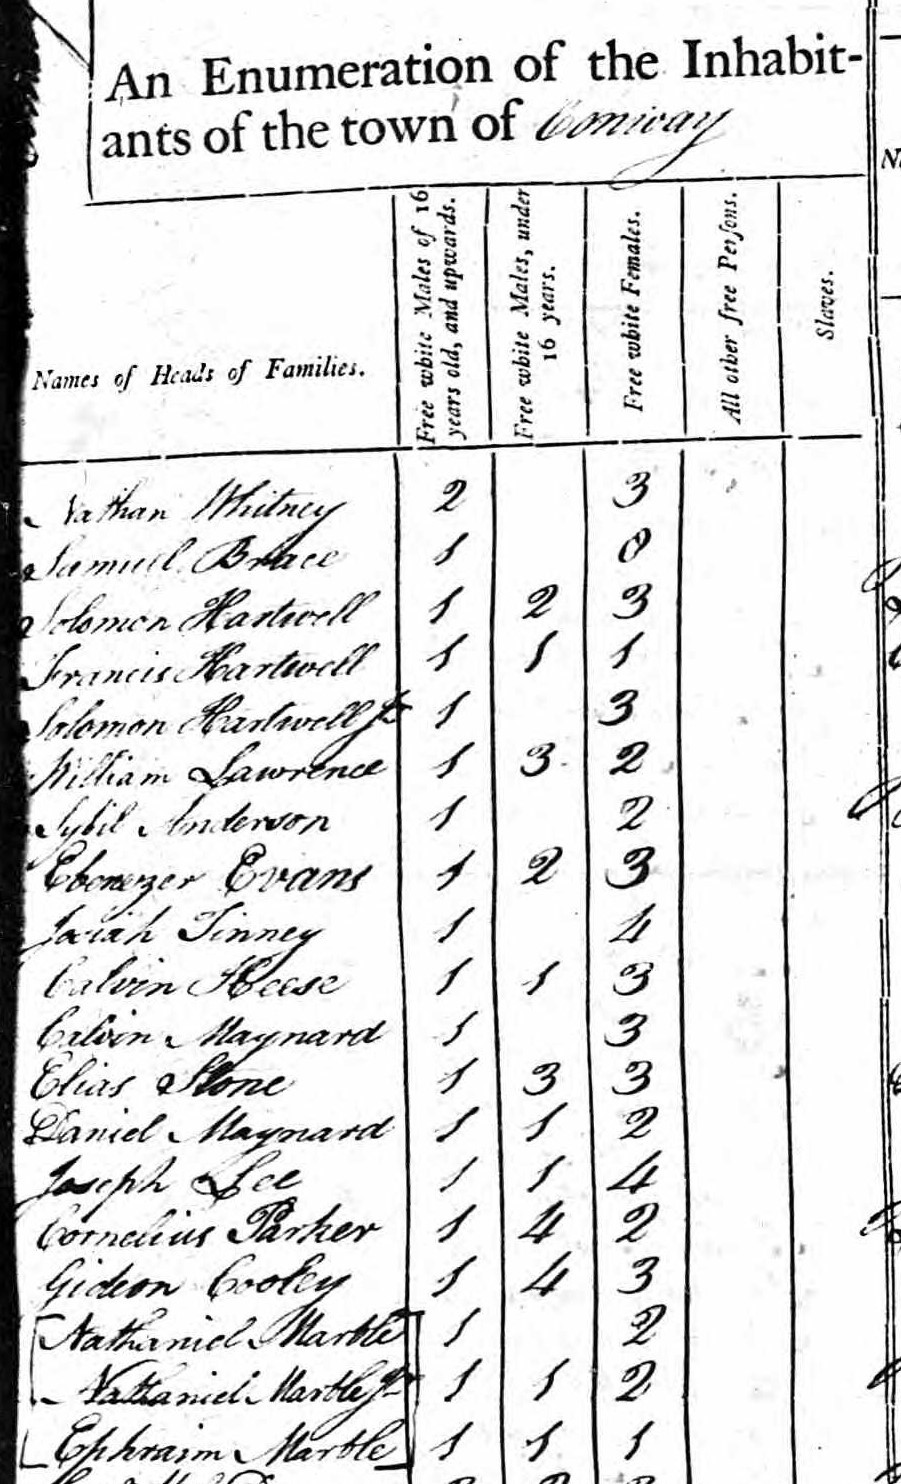 An Enumeration of the Inhabit-
ants of the town of Conway
Names of Heads of Families.
Free white Males of 16 years old, and upwards.
Free white Males, under 16 years.
Free white Females.
All other free Persons.
Slaves.
Nathan Whitney 2 3
Samuel Brace 1 8
Solomon Hartwell 1 2 3
Francis Hartwell 1 1 1
Solomon Hartwell Jr 1 3
William Lawrence 1 3 2
Sybil Anderson 1 2
Ebenezer Evans 1 2 3
Josiah Tinney 1 4
Calvin Keese 1 1 3
Calvin Maynard 1 3
Elias Stone 1 3 3
Daniel Maynard 1 1 2
Joseph Lee 1 1 4
Cornelius Parker 1 4 2
Gideon Cooley 1 4 3
Nathaniel Marble 1 2
Nathaniel Marble Jr 1 1 2
Ephraim Marble 1 1 1